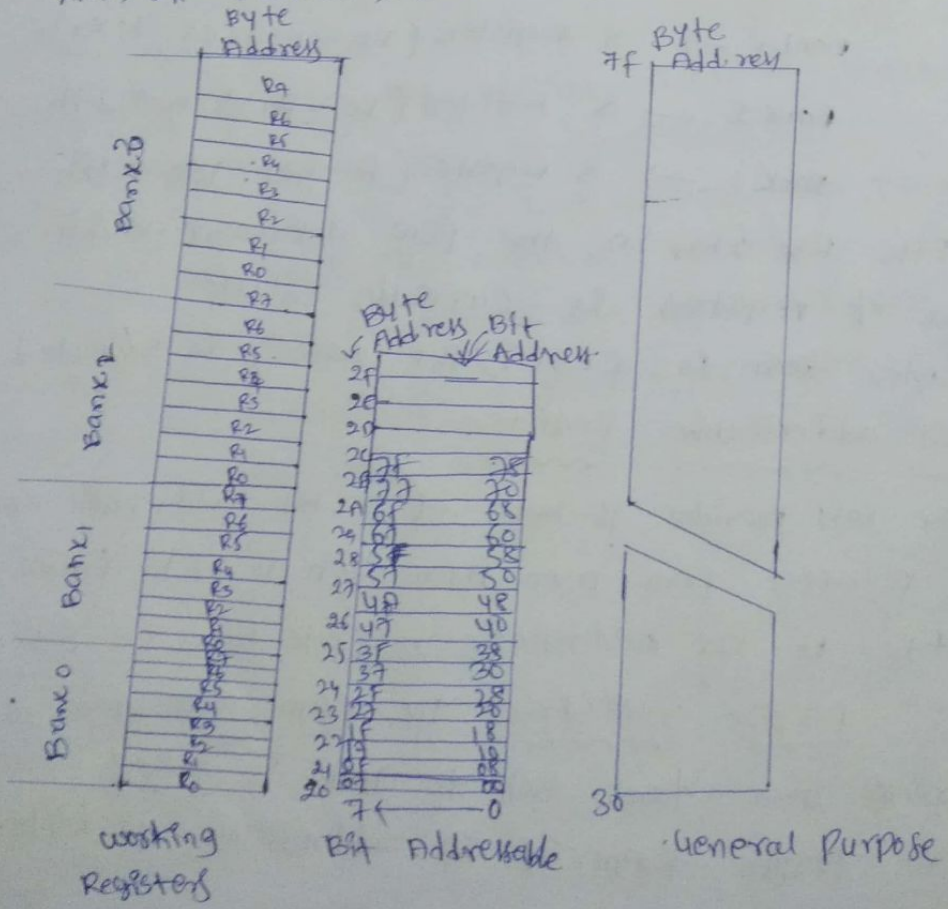 Byte
Address
Bank 3
R7
R6
R5
R4
R3
R2
R1
R0
Bank 2
R7
R6
R5
R4
R3
R2
R1
R0
Bank 1
R7
R6
R5
R4
R3
R2
Bank 0
R5
R4
R3
R2
R1
R0
working
Registers
Byte
Address
Bit
Address
2f
2E
2D
2C
7f 78
2B
77 70
2A 6f 68
29 67 60
28 5f 58
27 57 50
4f 48
26 47 40
25 3f 38
37 30
24 2f 28
23 27 20
22 1f 18
21
20
7 ← 0
Bit Addressable
Byte
7f Address
30
General Purpose